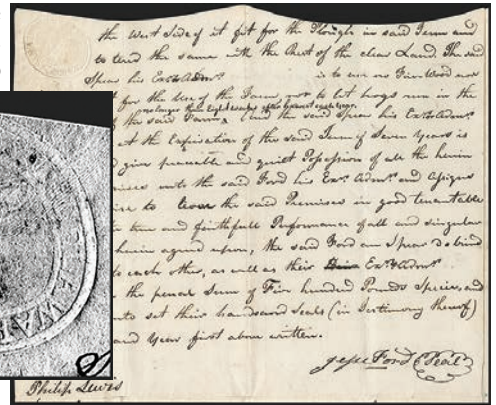 the West Side of it fit for the Plough in said Term and
to tend the same with the Rest of the clear Land The said
Spear his Exrs Admrs is to use no Fire Wood nor
for the Use of the Farm, nor to let hogs run in the
no longer than eight weeks of the present year
of the said Farm And the said Spear his Exrs Admrs
At the Expiration of the said Term of Seven Years is
give peaceable and quiet Possession of all the herein
unto the said Ford his Exrs Admrs and Assigns
to leave the said Premises in good tenantable
true and faithfull Performance of all and singular
herein agreed upon, the said Ford and Spear do bind
to each other, as well as their Exrs & Admrs
the penal Sum of Five hundred Pounds Specie, and
set their hands and Seals (in Testimony thereof)
and Year first above written.
Jesse Ford Seal
Philip Lewis